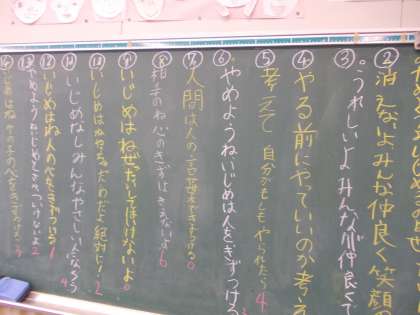 ②消えないよみんな仲良く笑顔の
③うれしいよみんなが仲良くて
④やる前にやっていいのか考え
⑤考えて 自分がもしもやられたら 4
⑥やめようねいじめは人をきずつける
⑦人間は人の言葉できずつける 0
⑧相手のね心のきずはきえないよ 6
⑨いじめはねぜったいしてはいけないよ 0
⑩いじめはねやっちゃだめだよ絶対に! 2
⑪いじめなしみんなやさしい人になろう 4
⑫いじめはね人の心をきずつける 1
⑬やめようよいじめ きずつけないよ 2